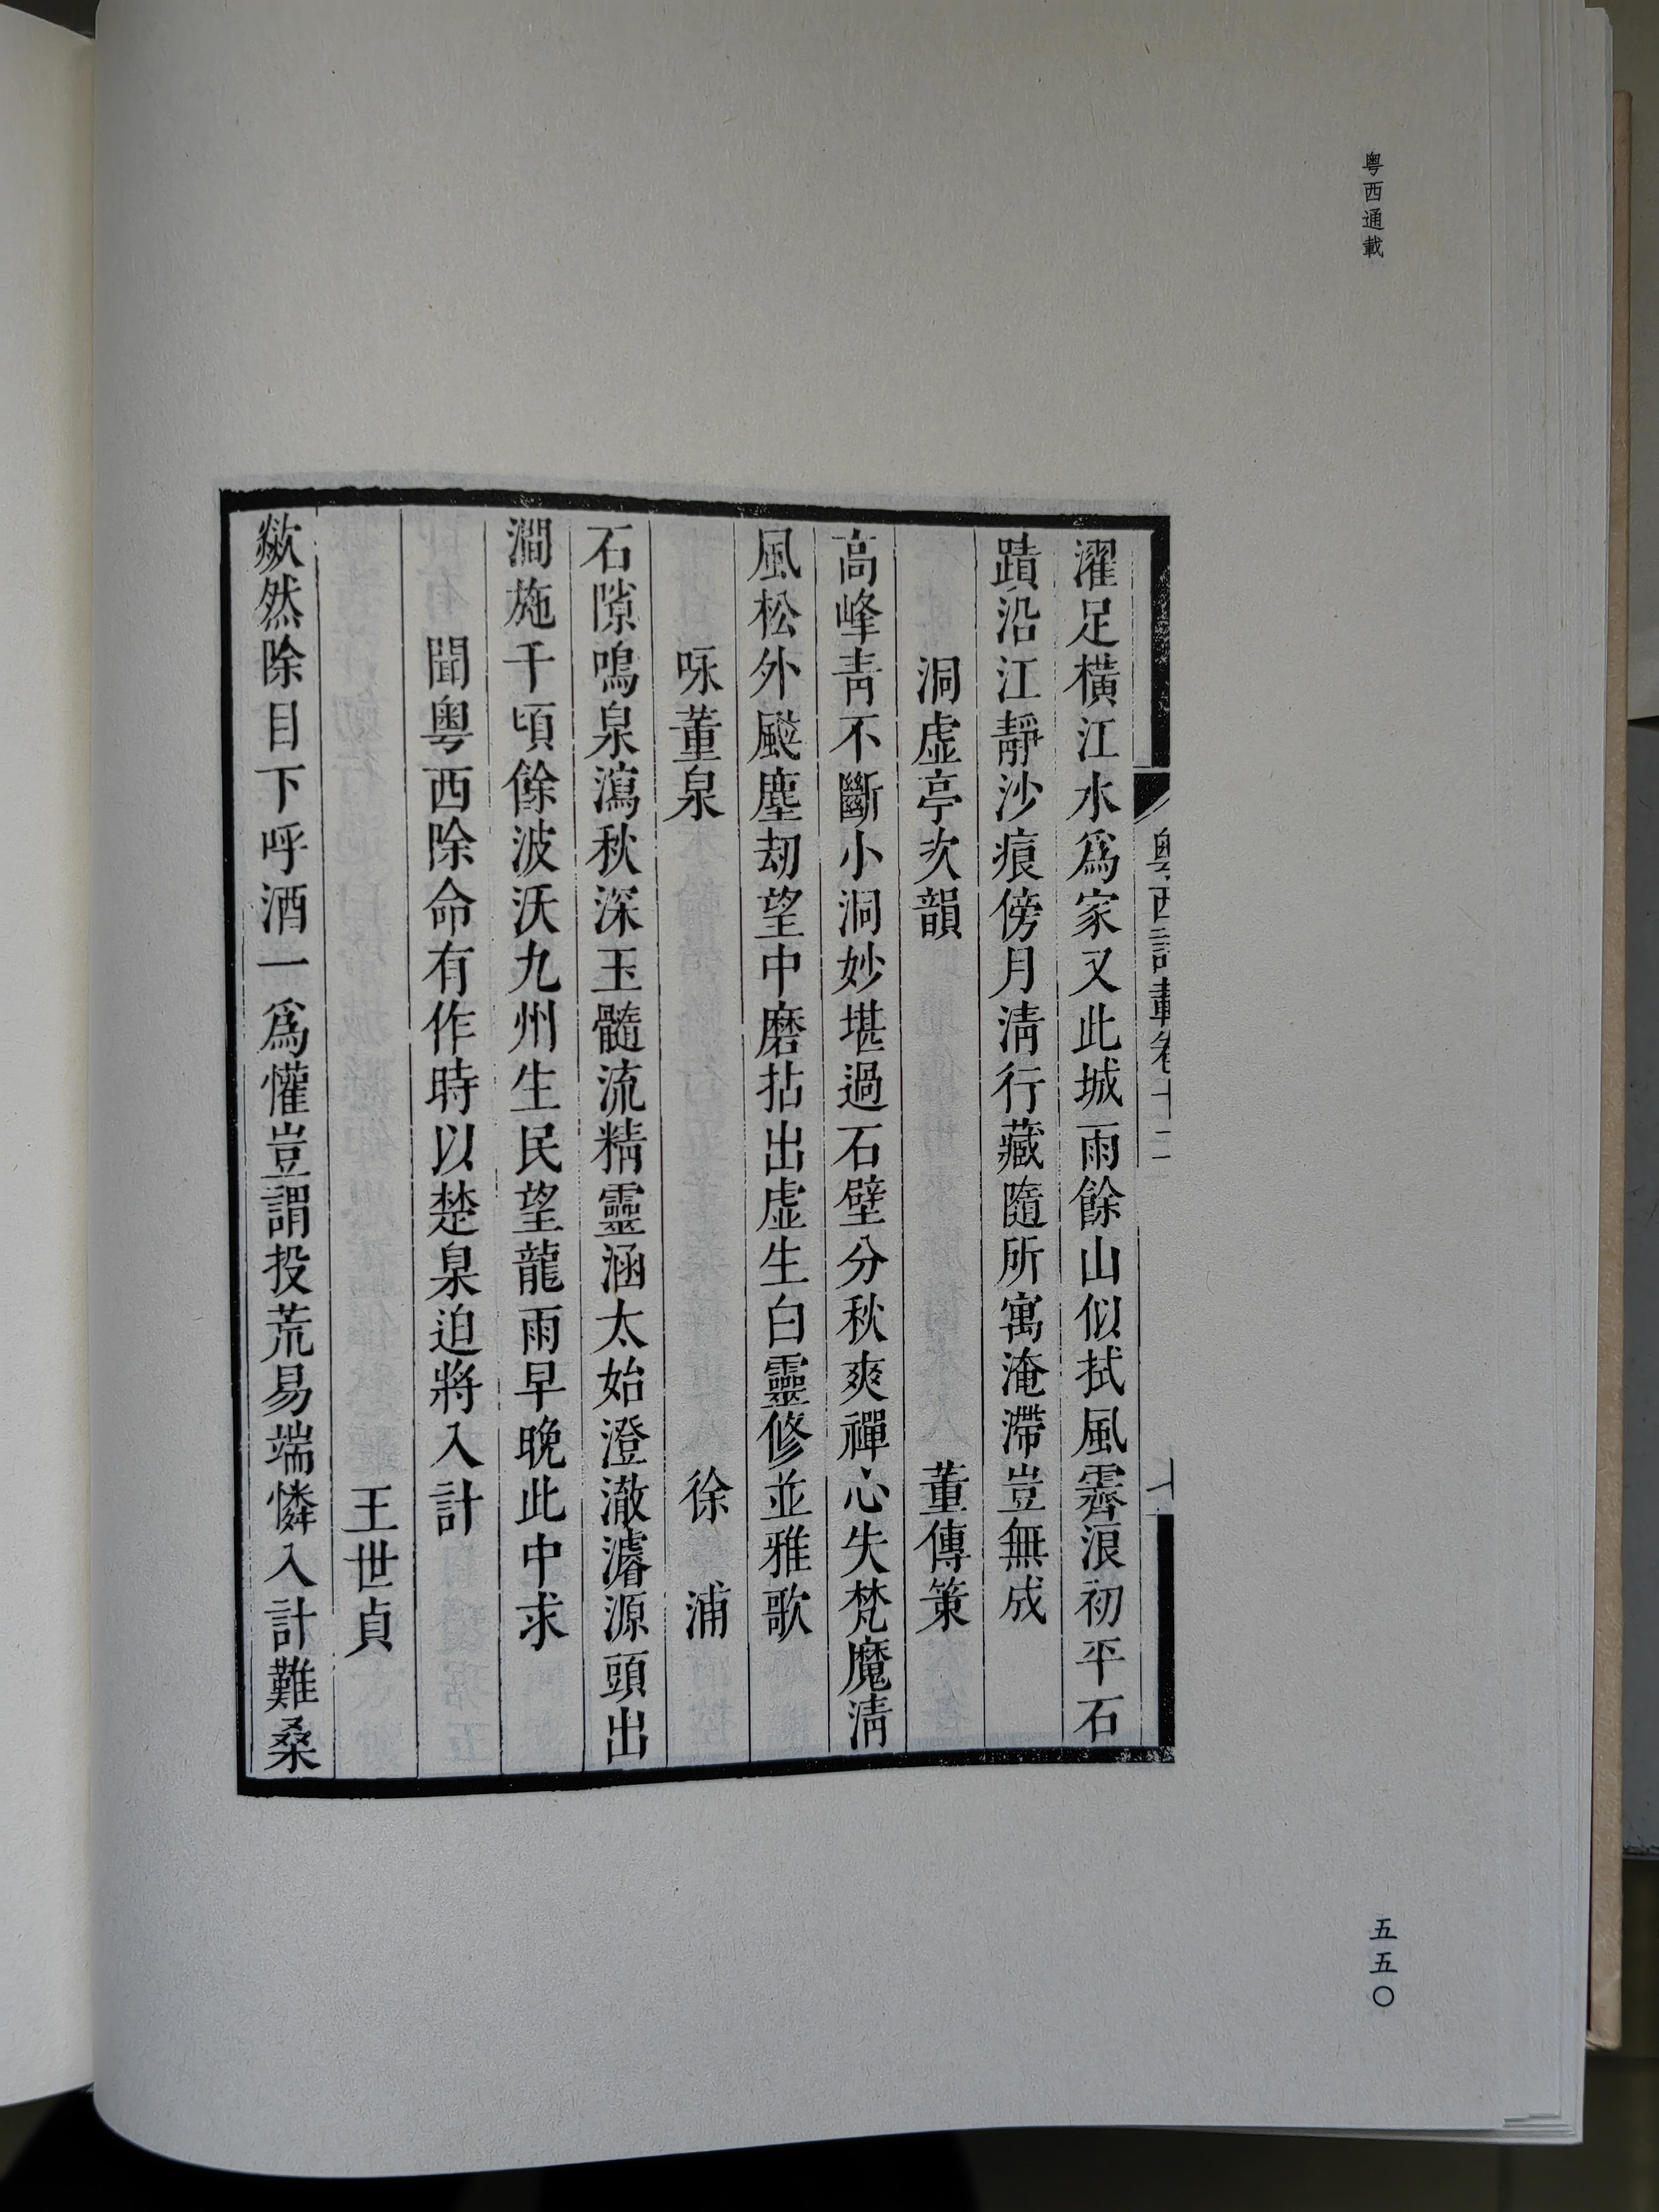 粤西通載
粤西詩載卷十二
濯足横江水爲家又此城雨餘山似拭風霽浪初平石
蹟沿江靜沙痕傍月淸行藏隨所寓淹滯豈無成
洞虚亭次韻 董傳策
高峰靑不斷小洞妙堪過石壁分秋爽禪心失梵魔淸
風松外颼塵刼望中磨拈出虚生白靈修並雅歌
咏董泉 徐浦
石隙鳴泉瀉秋深玉髓流精靈涵太始澄澈濬源頭出
澗施千頃餘波沃九州生民望龍雨早晚此中求
聞粤西除命有作時以楚臬迫將入計
王世貞
歘然除目下呼酒一爲懽豈謂投荒易端憐入計難桑
五五〇